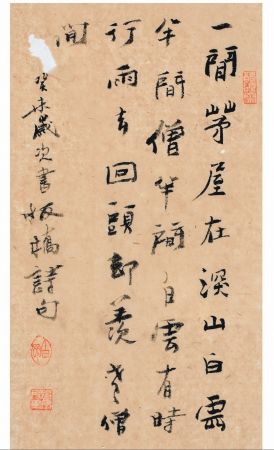 一間茅屋在深山白雲
半間僧半間白雲有時
行雨去回頭卻羨老僧
閒
癸未歲次書板橋詩句